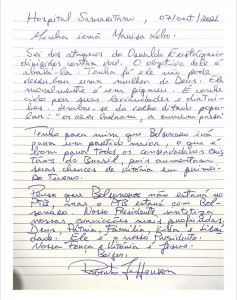 Hospital Samaritano, 07/out/2021
Minha irmã Marisa Lobo.
Sei dos ataques do Oswaldo Eustáquio
dirigidos contra você. O objetivo dele é
abatê-la. Tenha fé ele não pode
derrubar uma mulher de Deus. Ele
moralmente é um pigmeu. É conhe
cido por suas leviandades e
lembre-se do velho ditado popu
lar: "os cães ladram, a caravana passa"
Tenho para mim que Bolsonaro irá
para um partido maior, o que é
bom para todos os conservadores cris
tãos do Brasil, pois aumentam
suas chances de vitória em primei
ro turno.
Penso que Bolsonaro não estará no
PTB, mas o PTB estará com Bol-
sonaro. Nosso Presidente sintetiza
nossas convicções mais profundas.
Deus, Pátria, Família, Vida e Liber
dade. Ele é o nosso Presidente.
Nossa força e vitória é Jesus.